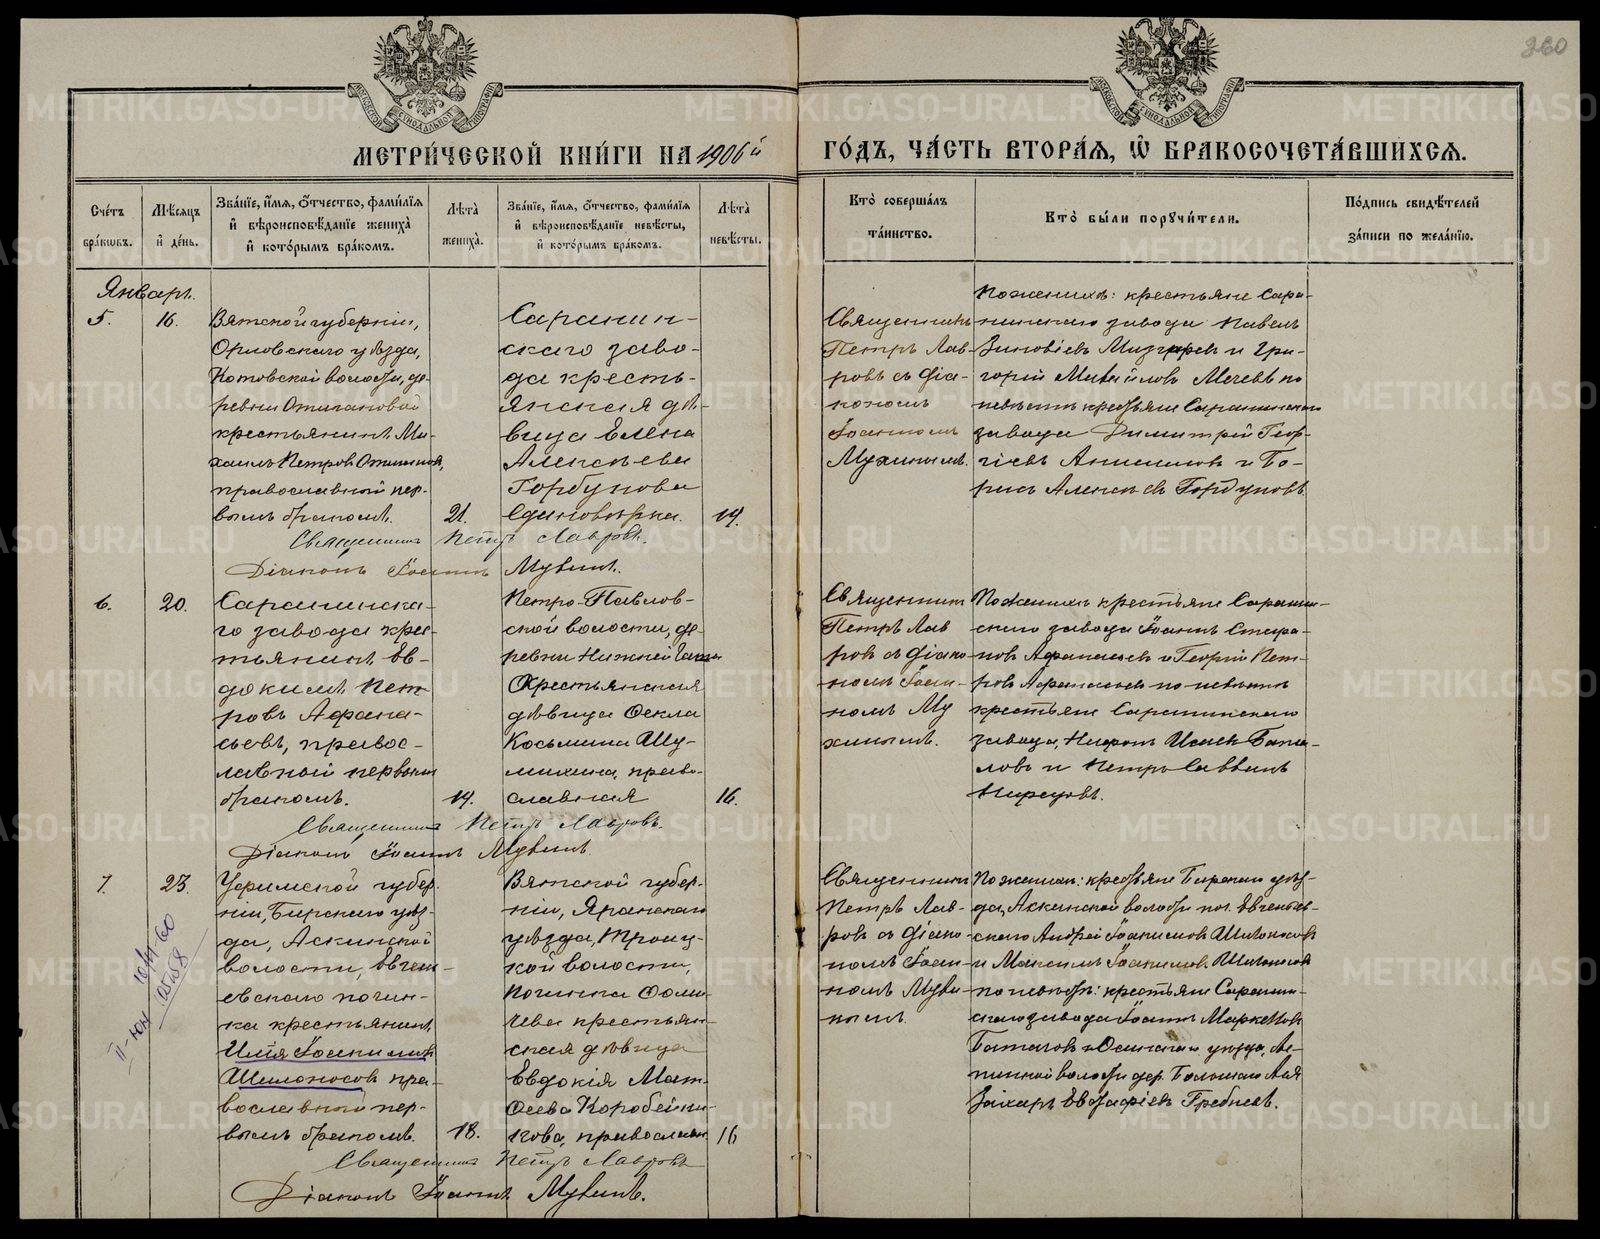 360
МЕТРИ́ЧЕСКОЙ КНИ́ГИ НА 1906й ГО́ДЪ, ЧА́СТЬ ВТОРА́Я, Ѡ БРАКОСОЧЕТА́ВШИХСЯ.
Сче́тъ бра́кѡвъ.
Мѣ́сяцъ и҆ де́нь.
Зва́нїе, и҆́мя, ѻ҆́тчество, фами́лїя и҆ вѣроисповѣ́данїе жениха̀ и҆ кото́рымъ бра́комъ.
Лѣта̀ жениха̀.
Зва́нїе, и҆́мя, ѻ҆́тчество, фами́лїя и҆ вѣроисповѣ́данїе невѣ́сты, и҆ кото́рымъ бра́комъ.
Лѣта̀ невѣ́сты.
Кто̀ соверша́лъ та́инство.
Кто̀ бы́ли порꙋчи́тели.
По́дпись свидѣ́телей за́писи по жела́нїю.
Январь.
5.
16.
Вятской губерніи,
Орловскаго уѣзда,
Котовской волости, де-
ревни
крестьянинъ Ми-
хаилъ Петровъ
православный пер-
вымъ бракомъ.
21.
Саранин-
скаго заво-
да кресть-
янская дѣ-
вица Елена
Алексѣева
Горбунова
Единовѣрка.
19.
Священникъ
Петръ Лав-
ровъ съ діа-
кономъ
Іоанномъ
Мухинымъ.
По женихѣ: крестьяне Сара-
нинскаго завода Павелъ
Зиновіевъ и Гри-
горій Михайловъ по
невѣстѣ крестьяне Саранинскаго
завода Димитрій Геор-
гіевъ и Бо-
рисъ Алексѣевъ Горбуновъ
Священникъ Петръ Лавровъ.
Діаконъ Іоаннъ Мухинъ.
6.
20.
Саранинска-
го завода крес-
тьянинъ Ев-
докимъ Пет-
ровъ Афана-
сьевъ, правос-
лавный первымъ
бракомъ.
19.
Петро-Павлов-
ской волости, де-
ревни Нижней
Крестьянская
дѣвица Ѳекла
Косьмина Шу-
михина, право-
славная
16.
Священникъ
Петръ Лав
ровъ съ діако-
номъ Іоан-
номъ Му
хинымъ.
По женихѣ крестьяне Саранин-
скаго завода Іоаннъ
Афанасьевъ и Георгій Пет-
ровъ Афанасьевъ по невѣстѣ
крестьяне Саранинскаго
завода,
и Петръ Саввинъ
Священникъ Петръ Лавровъ.
Діаконъ Іоаннъ Мухинъ.
7.
23.
Уфимской губер-
ніи, Бирскаго уѣз-
да, Аскинской
волости, Евген-
евскаго почин-
ка крестьянинъ
Илія Іоакимовъ
Шилоносовъ пра-
вославный пер-
вымъ бракомъ.
18.
Вятской губер-
ніи, Яранскаго
уѣзда, Троиц-
кой волости,
Починка Ѳоми-
чева крестьян-
ская дѣвица
Евдокія Мат-
ѳеева Коробейни-
кова, православн.
16
Священникъ
Петръ Лав-
ровъ съ діако-
номъ Іоан-
номъ Мухи-
нымъ.
По женихѣ: крестьяне Бирскаго уѣз-
да, Аскинской волости поч. Евгеньев-
скаго Андрей Іоакимовъ Шилоносовъ
и Максимъ Іоакимовъ Шилоносовъ
по невѣстѣ: крестьяне Саранин-
скаго завода Іоаннъ Маркеловъ
и Осинскаго уѣзда,
волости дер.
Захаръ Гребневъ.
Священникъ Петръ Лавровъ
Діаконъ Іоаннъ Мухинъ.
II-ЮН